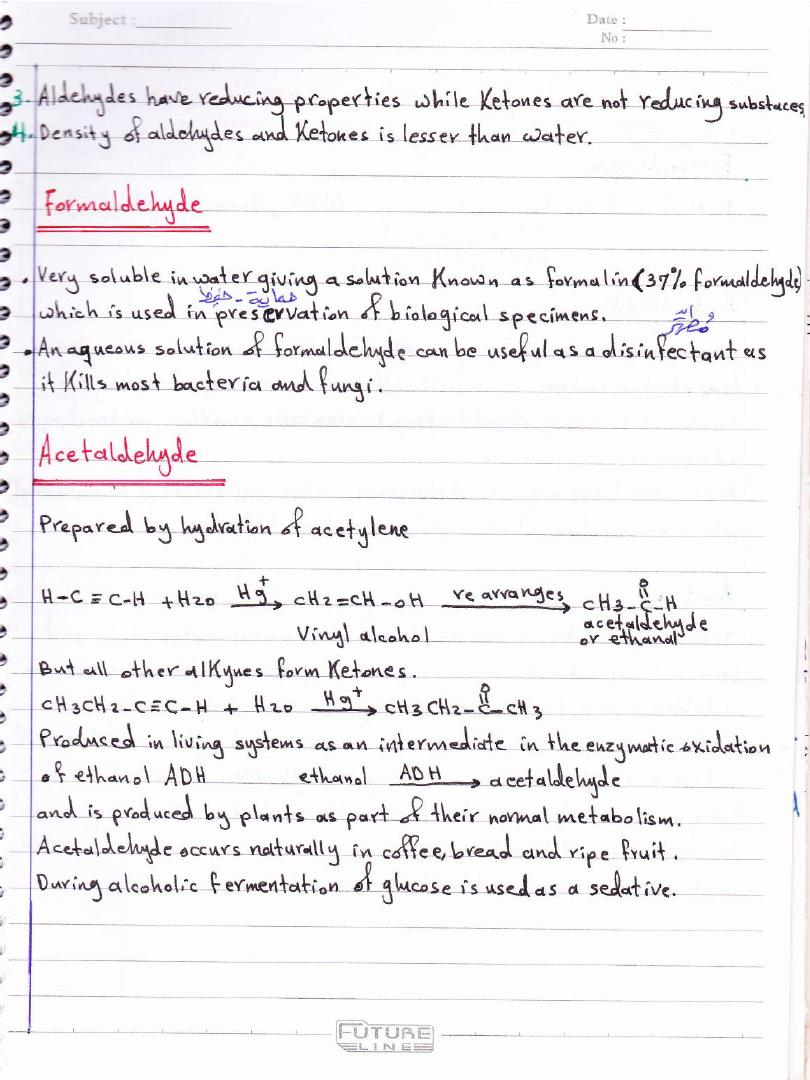 Subject :
Date :
No :
3. Aldehydes have reducing properties while Ketones are not reducing substaces
4. Density of aldehydes and Ketones is lesser than water.
Formaldehyde
. Very soluble in water giving a solution Known as formalin (37% formaldehyde)
حماية - حفظ
which is used in preservation of biological specimens.
. An aqueous solution of formaldehyde can be useful as a disinfectant as
it Kills most bacteria and fungi.
Acetaldehyde
Prepared by hydration of acetylene
H-C≡C-H + H2O Hg+ → CH2=CH-OH re arranges → CH3-C-H
O
Vinyl alcohol
acetaldehyde
or ethanal
But all other alKynes form Ketones.
CH3CH2-C≡C-H + H2O Hg+ → CH3CH2-C-CH3
O
Produced in living systems as an intermediate in the enzymatic oxidation
of ethanol ADH ethanol ADH → acetaldehyde
and is produced by plants as part of their normal metabolism.
Acetaldehyde occurs naturally in coffee, bread and ripe fruit.
During alcoholic fermentation of glucose is used as a sedative.
FUTURE
LINE